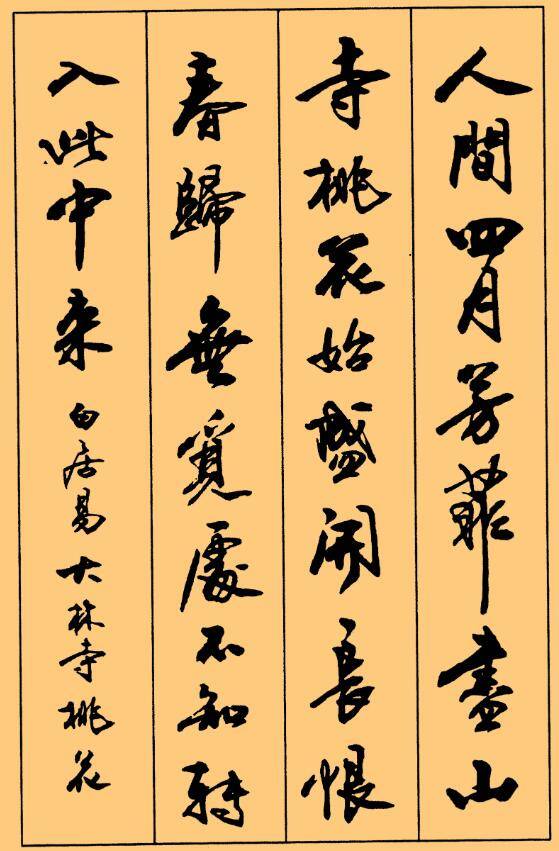 人間四月芳菲盡山
寺桃花始盛開長恨
春歸無覓處不知轉
入此中来白居易大林寺桃花